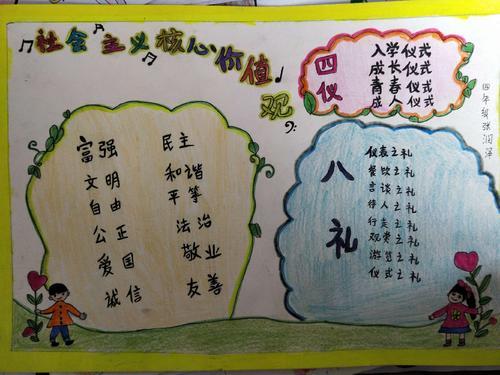 社会主义核心价值观
富强 民主
文明 和谐
自由 平等
公正 法治
爱国 敬业
诚信 友善
四仪
入学仪式
成长仪式
青春仪式
成人仪式
八礼
仪表之礼
餐饮之礼
言谈之礼
待人之礼
行走之礼
观赏之礼
游览之礼
仪式之礼
四年级张润泽